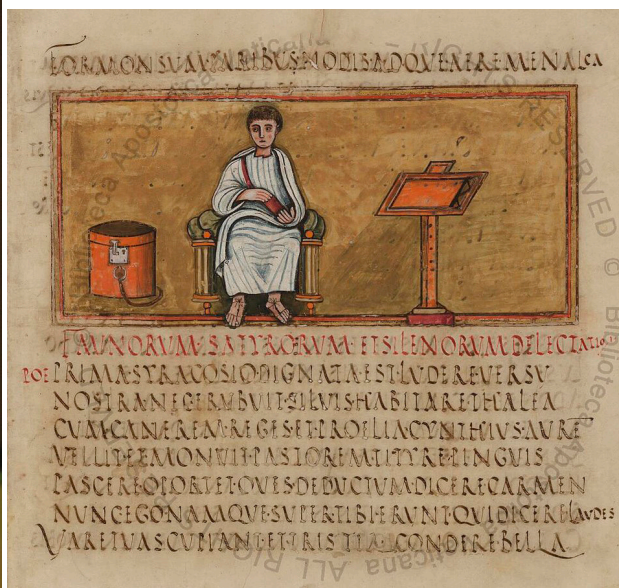 FORMONSVM·PARIBVS·NODIS·ADQVE·AERE·MENALCA
FAVNORVM·SATYRORVM·ET·SILENORVM·DELECTATIO
POE PRIMA·SYRACOSIO·DIGNATA·EST·LVDERE·VERSV
NOSTRA·NEC·ERVBVIT·SILVIS·HABITARE·THALEA
CVM·CANEREM·REGES·ET·PROELIA·CYNTHIVS·AVRE
VELLIT·MONVIT·PASTOREM·TITYRE·PINGVIS
PASCERE·OPORTET·OVES·DEDVCTVM·DICERE·CARMEN
NVNC·EGO·NAMQVE·SVPER·TIBI·ERVNT·QVI·DICERE·LAVDES
VARE·TVAS·CVPIANT·ET·TRISTIA·CONDERE·BELLA
© Biblioteca Apostolica Vaticana ALL RIGHTS RESERVED